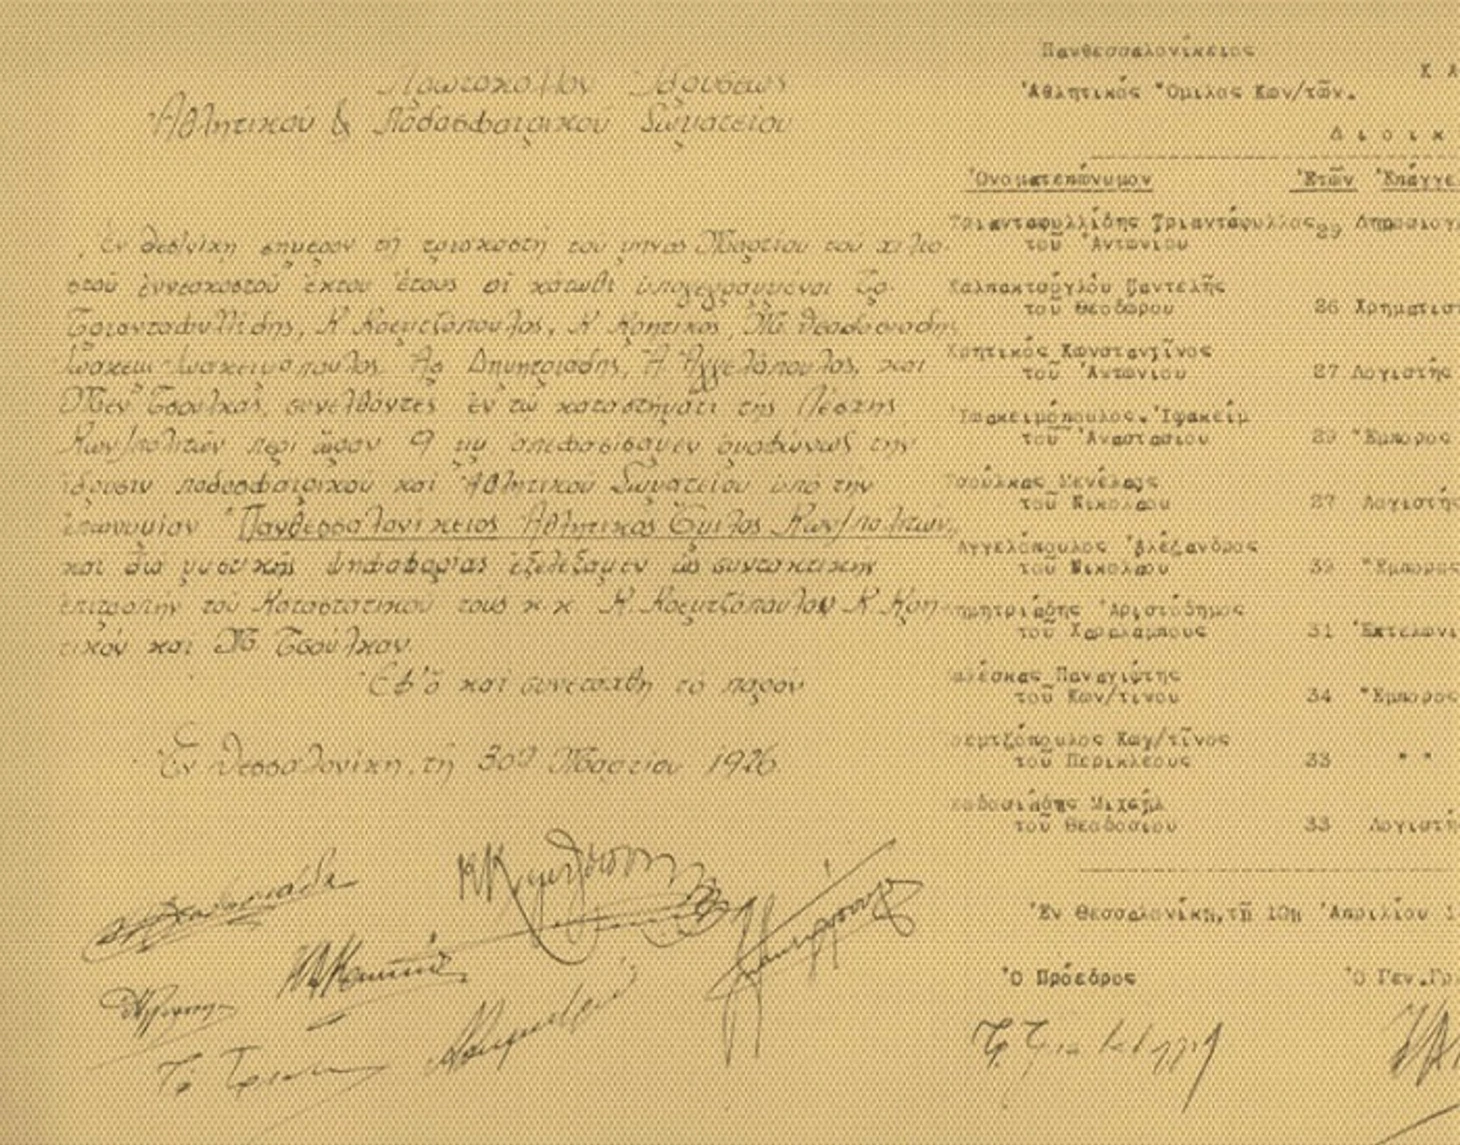 Πρωτόκολλον Ἱδρύσεως
Ἀθλητικοῦ & Ποδοσφαιρικοῦ Σωματείου
Ἐν Θεσ/νίκῃ σήμερον τῇ τριακοστῇ τοῦ μηνὸς Μαρτίου τοῦ χιλιο-
στοῦ ἐννεακοστοῦ ἕκτου ἔτους οἱ κάτωθι ὑπογεγραμμένοι Τρ.
Τριανταφυλλίδης, Κ Κρεμτζόπουλος, Κ Κρητικός, Μ. Θεοδοσιάδης
Ἰωακειμ Ἰωακειμόπουλος, Ἀρ Δημητριάδης, Ἀ Ἀγγελόπουλος, καὶ
Μεν Τσούλκας, συνελθόντες ἐν τῷ καταστήματι τῆς Λέσχης
Κων/πολιτῶν περὶ ὥραν 9 μμ, ἀπεφασίσαμεν ὁμοφώνως τὴν
ἵδρυσιν ποδοσφαιρικοῦ καὶ Ἀθλητικοῦ Σωματείου ὑπὸ τὴν
ἐπωνυμίαν "Πανθεσσαλονίκειος Ἀθλητικὸς Ὅμιλος Κων/πολιτῶν"
καὶ διὰ μυστικῆς ψηφοφορίας ἐξελέξαμεν ὡς συντακτικὴν
ἐπιτροπὴν τοῦ Καταστατικοῦ τοὺς κ.κ. Κ. Κρεμτζόπουλον Κ Κρη-
τικόν καὶ Μ. Τσούλκαν.
Ἐφ' ᾧ καὶ συνετάχθη τὸ παρόν
Ἐν Θεσσαλονίκῃ, τῇ 30ῃ Μαρτίου 1926
Πανθεσσαλονίκειος
Ἀθλητικός Ὅμιλος Κων/τῶν.
Κ Α
Δ ι ο ι κ
Ὀνοματεπώνυμον Ἐτῶν Ἐπάγγε
Τριανταφυλλίδης Τριαντάφυλλος 29 Δημοσιογ
τοῦ Ἀντωνίου
Καλπακτσόγλου Παντελῆς
τοῦ Θεοδώρου 26 Χρηματισ
Κρητικός Κωνσταντῖνος
τοῦ Ἀντωνίου 27 Λογιστής
Ἰωακειμόπουλος Ἰωακείμ
τοῦ Ἀναστασίου 29 Ἔμπορος
Τσούλκας Μενέλαος
τοῦ Νικολάου 27 Λογιστής
Ἀγγελόπουλος Ἀλέξανδρος
τοῦ Νικολάου 32 Ἔμπορος
ημητριάδης Ἀριστόδημος
τοῦ Χαραλάμπους 31 Ἐκτελωνι
αλέσκας Παναγιώτης
τοῦ Κων/τίνου 34 Ἔμπορος
ρεμτζόπουλος Κων/τῖνος
τοῦ Περικλέους 33 " "
εοδοσιάδης Μιχαήλ
τοῦ Θεοδοσίου 33 Λογιστή
Ἐν Θεσσαλονίκῃ, τῇ 10ῃ Ἀπριλίου 1
Ὁ Πρόεδρος Ὁ Γεν.Γρ